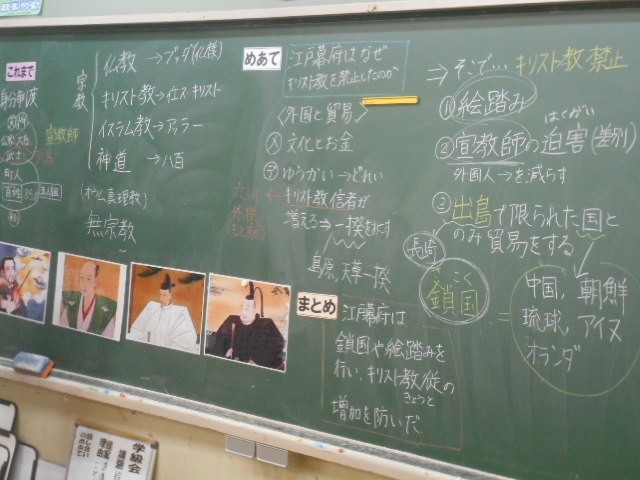 これまで
身分制度
公家
武士
町人
宣教師
宗教
仏教→ブッダ(仏様)
キリスト教→イエスキリスト
イスラム教→アッラー
神道→八百
(オウム真理教)
無宗教
めあて
江戸幕府はなぜ
キリスト教を禁止したのか
〈外国と貿易〉
文化とお金
ゆうかい→どれい
キリスト教信者が
増える→一揆をおこす
島原、天草一揆
まとめ
江戸幕府は
鎖国や絵踏みを
行い、キリスト教徒の
きょうと
増加を防いだ
⇒そこで…キリスト教禁止
①絵踏み
はくがい
②宣教師の迫害(差別)
外国人→を減らす
③出島で限られた国と
のみ貿易をする
長崎
さこく
鎖国
=
中国、朝鮮
琉球、アイヌ
オランダ
学級会